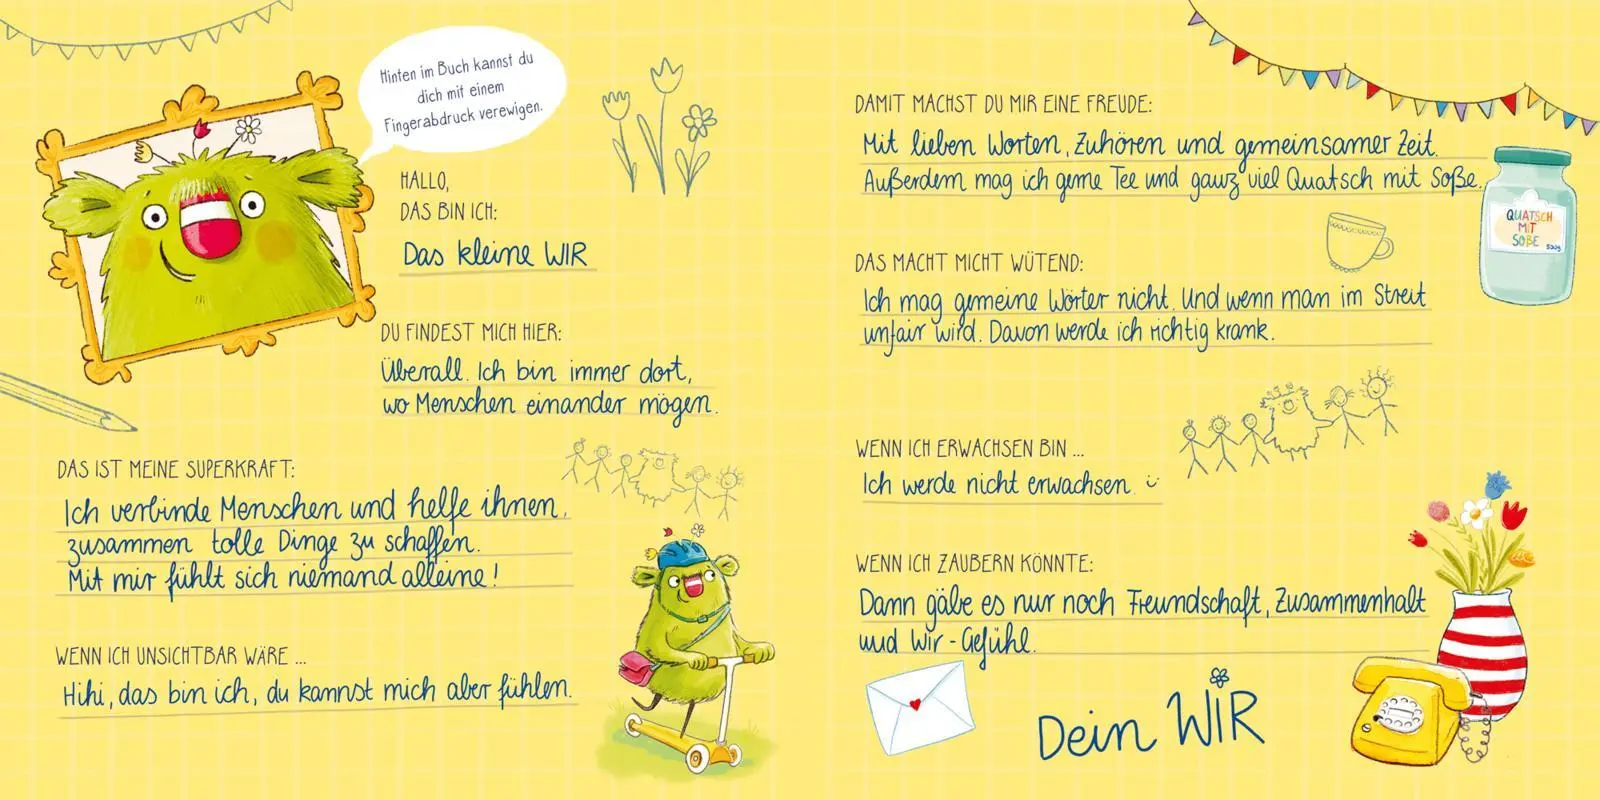 Hinten im Buch kannst du
dich mit einem
Fingerabdruck verewigen.
HALLO,
DAS BIN ICH:
Das kleine WIR
DU FINDEST MICH HIER:
Überall. Ich bin immer dort,
wo Menschen einander mögen.
DAS IST MEINE SUPERKRAFT:
Ich verbinde Menschen und helfe ihnen,
zusammen tolle Dinge zu schaffen.
Mit mir fühlt sich niemand alleine!
WENN ICH UNSICHTBAR WÄRE ...
Hihi, das bin ich, du kannst mich aber fühlen.
DAMIT MACHST DU MIR EINE FREUDE:
Mit lieben Worten, Zuhören und gemeinsamer Zeit.
Außerdem mag ich gerne Tee und ganz viel Quatsch mit Soße.
QUATSCH
MIT
SOßE
500g
DAS MACHT MICHT WÜTEND:
Ich mag gemeine Wörter nicht. Und wenn man im Streit
unfair wird. Davon werde ich richtig krank.
WENN ICH ERWACHSEN BIN ...
Ich werde nicht erwachsen.
WENN ICH ZAUBERN KÖNNTE:
Dann gäbe es nur noch Freundschaft, Zusammenhalt
und Wir-Gefühl.
Dein WIR